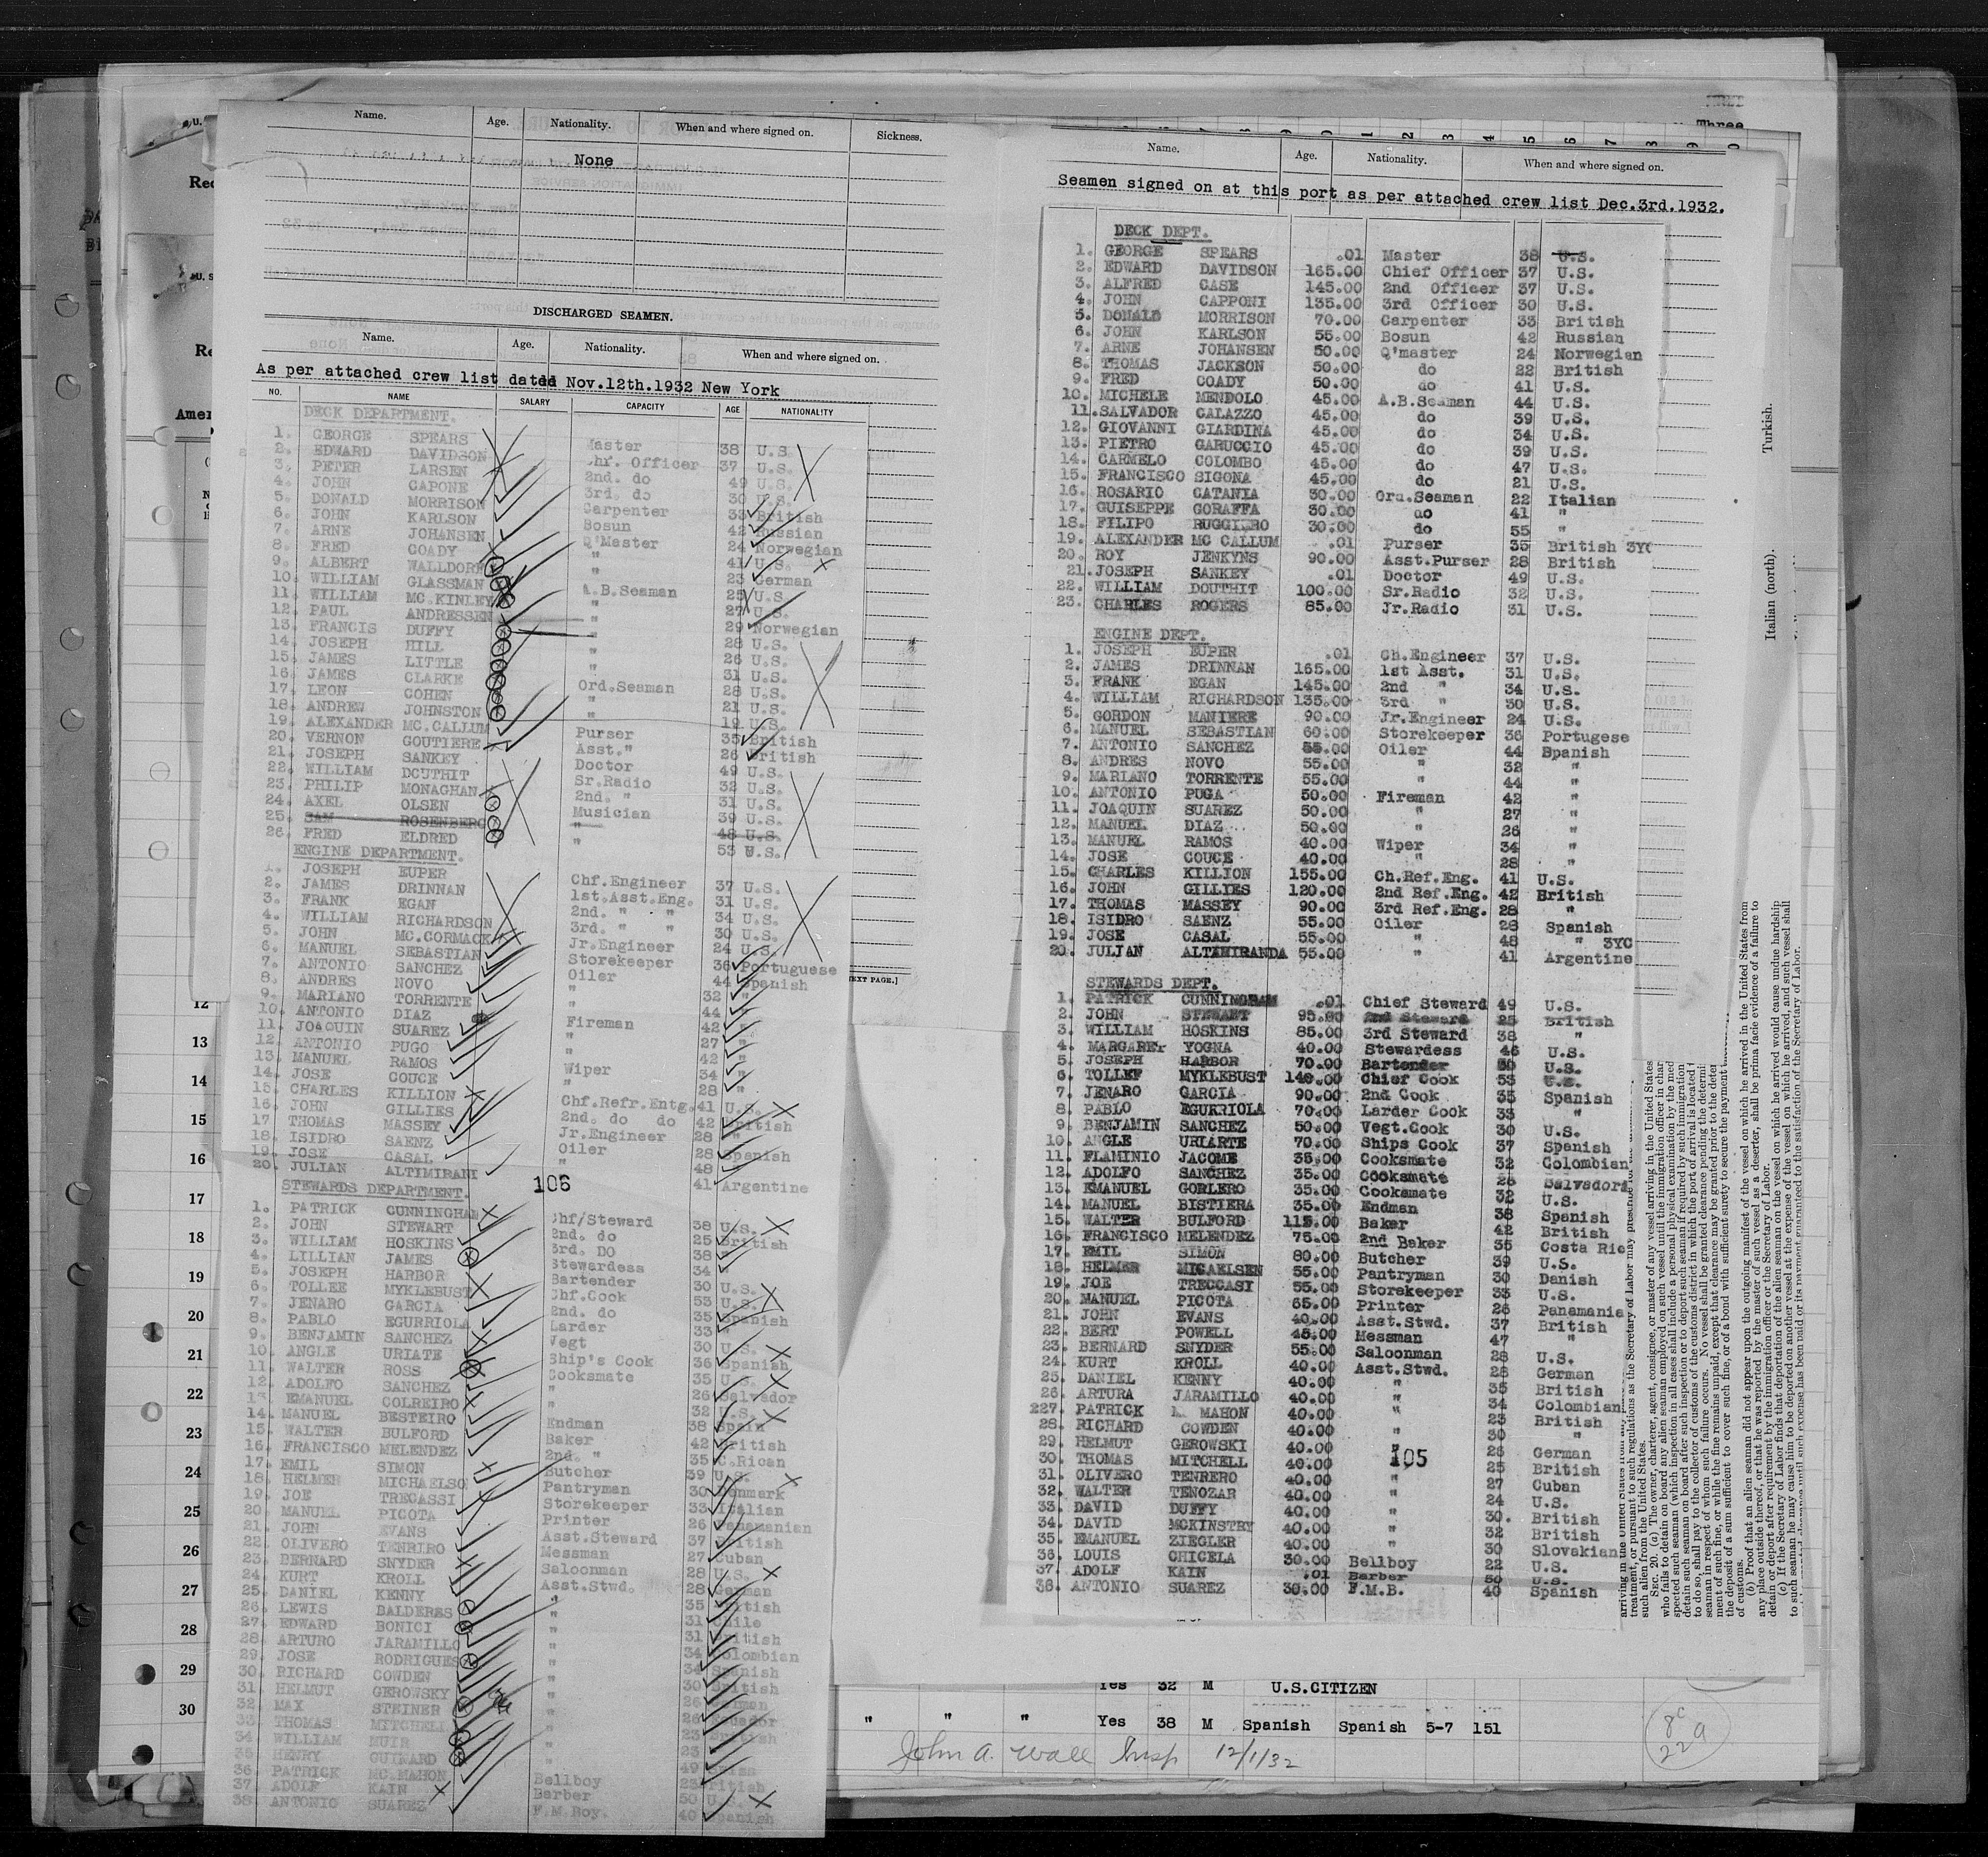 Name. Age. Nationality. When and where signed on. Sickness.
None
DISCHARGED SEAMEN.
Name. Age. Nationality. When and where signed on.
As per attached crew list dated Nov.12th.1932 New York
NO. NAME SALARY CAPACITY AGE NATIONALITY
DECK DEPARTMENT.
1. GEORGE SPEARS Master 38 U.S.
2. EDWARD DAVIDSON Chf. Officer 37 U.S.
3. PETER LARSEN 2nd. do 49 U.S.
4. JOHN CAPONE 3rd. do 30 U.S.
5. DONALD MORRISON Carpenter 33 British
6. JOHN KARLSON Bosun 42 Russian
7. ARNE JOHANSEN Q'Master 24 Norwegian
8. FRED COADY " 41 U.S.
9. ALBERT WALLDORF " 23 German
10. WILLIAM GLASSMAN A.B.Seaman 25 U.S.
11. WILLIAM MC.KINLEY " 27 U.S.
12. PAUL ANDRESSEN " 29 Norwegian
13. FRANCIS DUFFY " 28 U.S.
14. JOSEPH HILL " 26 U.S.
15. JAMES LITTLE " 31 U.S.
16. JAMES CLARKE Ord.Seaman 28 U.S.
17. LEON COHEN " 21 U.S.
18. ANDREW JOHNSTON " 19 U.S.
19. ALEXANDER MC.CALLUM Purser 35 British
20. VERNON GOUTIERE Asst." 26 British
21. JOSEPH SANKEY Doctor 49 U.S.
22. WILLIAM DOUTHIT Sr.Radio 32 U.S.
23. PHILIP MONAGHAN 2nd. " 31 U.S.
24. AXEL OLSEN Musician 39 U.S.
25. SAM ROSENBERG " 48 U.S.
26. FRED ELDRED " 53 U.S.
ENGINE DEPARTMENT.
1. JOSEPH EUPER Chf.Engineer 37 U.S.
2. JAMES DRINNAN 1st.Asst.Eng. 31 U.S.
3. FRANK EGAN 2nd. " " 34 U.S.
4. WILLIAM RICHARDSON 3rd. " " 30 U.S.
5. JOHN MC.CORMACK Jr.Engineer 24 U.S.
6. MANUEL SEBASTIAN Storekeeper 36 Portuguese
7. ANTONIO SANCHEZ Oiler 44 Spanish
8. ANDRES NOVO " 32 "
9. MARIANO TORRENTE " 44 "
10. ANTONIO DIAZ Fireman 42 "
11. JOAQUIN SUAREZ " 27 "
12. ANTONIO PUGO " 42 "
13. MANUEL RAMOS Wiper 34 "
14. JOSE COUCE " 28 "
15. CHARLES KILLION Chf.Refr.Entg. 41 U.S.
16. JOHN GILLIES 2nd. do do 42 British
17 THOMAS MASSEY Jr.Engineer 28 "
18. ISIDRO SAENZ Oiler 28 Spanish
19. JOSE CASAL " 48 "
20. JULIAN ALTIMIRANI 41 Argentine
106
STEWARDS DEPARTMENT.
1. PATRICK CUNNINGHAM Chf/Steward 38 U.S.
2. JOHN STEWART 2nd. do 25 British
3. WILLIAM HOSKINS 3rd. DO 38 "
4. LILLIAN JAMES Stewardess 34
5. JOSEPH HARBOR Bartender 30 U.S.
6. TOLLEF MYKLEBUST Chf.Cook 53 U.S.
7. JENARO GARCIA 2nd. do 35 Spanish
8. PABLO EGURRIOLA Larder 33 "
9. BENJAMIN SANCHEZ Vegt 30 U.S.
10. ANGLE URIATE Ship's Cook 36 Spanish
11. WALTER ROSS Cooksmate 35 U.S.
12. ADOLFO SANCHEZ " 26 Salvador
13 EMANUEL COLREIRO " 32 U.S.
14. MANUEL BESTEIRO Endman 38 Spain
15. WALTER BULFORD Baker 42 British
16. FRANCISCO MELENDEZ 2nd. " 35 C.Rican
17. EMIL SIMON Butcher 39 U.S.
18. HELMER MICHAELSO Pantryman 30 Denmark
19. JOE TRECASSI Storekeeper 33 Italian
20 MANUEL PICOTA Printer 26 Panamanian
21. JOHN EVANS Asst.Steward 37 British
22 OLIVERO TENRIRO Messman 27 Cuban
23. BERNARD SNYDER Saloonman 28 U.S.
24. KURT KROLL Asst.Stwd. 28 German
25. DANIEL KENNY " 35 British
26. LEWIS BALDERES " 31 Chile
27. EDWARD BONICI " 31 British
28. ARTURO JARAMILLO " 34 Colombian
29. JOSE RODRIGUES " 34 Spanish
30. RICHARD COWDEN " 30 British
31. HELMUT GEROWSKY " 26 German
32. MAX STEINER " 26 Ecuador
33. THOMAS MITCHELL " 23 British
34 WILLIAM MUIR " 23
35 HENRY GUINARD " 49 Swiss
36 PATRICK MC.MAHON Bellboy 23 British
37 ADOLF KAIN Barber 50 U.S.
38. ANTONIO SUAREZ F.M.Boy. 40 Spanish
Name. Age. Nationality. When and where signed on.
Seamen signed on at this port as per attached crew list Dec.3rd.1932.
DECK DEPT.
1. GEORGE SPEARS .01 Master 38 U.S.
2. EDWARD DAVIDSON 165.00 Chief Officer 37 U.S.
3. ALFRED CASE 145.00 2nd Officer 37 U.S.
4. JOHN CAPPONI 135.00 3rd Officer 30 U.S.
5. DONALD MORRISON 70.00 Carpenter 33 British
6. JOHN KARLSON 55.00 Bosun 42 Russian
7. ARNE JOHANSEN 50.00 Q'master 24 Norwegian
8. THOMAS JACKSON 50.00 do 22 British
9. FRED COADY 50.00 do 41 U.S.
10. MICHELE MENDOLO 45.00 A.B.Seaman 44 U.S.
11. SALVADOR CALAZZO 45.00 do 39 U.S.
12. GIOVANNI GIARDINA 45.00 do 34 U.S.
13. PIETRO GARUCCIO 45.00 do 39 U.S.
14. CARMELO COLOMBO 45.00 do 47 U.S.
15. FRANCISCO SIGONA 45.00 do 21 U.S.
16. ROSARIO CATANIA 30.00 Ord.Seaman 22 Italian
17. GUISEPPE GORAFFA 30.00 do 41 "
18. FILIPO RUGGIERO 30.00 do 55 "
19. ALEXANDER MC CALLUM .01 Purser 35 British 3YC
20. ROY JENKYNS 90.00 Asst.Purser 28 British
21. JOSEPH SANKEY .01 Doctor 49 U.S.
22. WILLIAM DOUTHIT 100.00 Sr.Radio 32 U.S.
23. CHARLES ROGERS 85.00 Jr.Radio 31 U.S.
ENGINE DEPT.
1. JOSEPH EUPER .01 Ch.Engineer 37 U.S.
2. JAMES DRINNAN 165.00 1st Asst. 31 U.S.
3. FRANK EGAN 145.00 2nd " 34 U.S.
4. WILLIAM RICHARDSON 135.00 3rd " 30 U.S.
5. GORDON MANIERE 90.00 Jr.Engineer 24 U.S.
6. MANUEL SEBASTIAN 60.00 Storekeeper 36 Portugese
7. ANTONIO SANCHEZ 55.00 Oiler 44 Spanish
8. ANDRES NOVO 55.00 " 32 "
9. MARIANO TORRENTE 55.00 " 44 "
10. ANTONIO PUGA 50.00 Fireman 42 "
11. JOAQUIN SUAREZ 50.00 " 27 "
12. MANUEL DIAZ 50.00 " 26 "
13. MANUEL RAMOS 40.00 Wiper 34 "
14. JOSE COUCE 40.00 " 28 "
15. CHARLES KILLION 155.00 Ch.Ref.Eng. 41 U.S.
16. JOHN GILLIES 120.00 2nd Ref.Eng. 42 British
17. THOMAS MASSEY 90.00 3rd Ref.Eng. 28 "
18. ISIDRO SAENZ 55.00 Oiler 28 Spanish
19. JOSE CASAL 55.00 " 48 " 3YC
20. JULIAN ALTAMIRANDA 55.00 " 41 Argentine
STEWARDS DEPT.
1. PATRICK CUNNINGHAM .01 Chief Steward 49 U.S.
2. JOHN STEWART 95.00 2nd Steward 25 British
3. WILLIAM HOSKINS 85.00 3rd Steward 38 "
4. MARGARET YOGNA 40.00 Stewardess 46 U.S.
5. JOSEPH HARBOR 70.00 Bartender 30 U.S.
6. TOLLEF MYKLEBUST 140.00 Chief Cook 53 U.S.
7. JENARO GARCIA 90.00 2nd Cook 35 Spanish
8. PABLO EGURRIOLA 70.00 Larder Cook 33 "
9. BENJAMIN SANCHEZ 50.00 Vegt.Cook 30 U.S.
10. ANGLE URIARTE 70.00 Ships Cook 37 Spanish
11. FLAMINIO JACOME 35.00 Cooksmate 32 Colombian
12. ADOLFO SANCHEZ 35.00 Cooksmate 26 Salvadori
13. EMANUEL GORLERO 35.00 Cooksmate 32 U.S.
14. MANUEL BISTIERA 35.00 Endman 38 Spanish
15. WALTER BULFORD 115.00 Baker 42 British
16. FRANCISCO MELENDEZ 75.00 2nd Baker 35 Costa Ric
17. EMIL SIMON 80.00 Butcher 39 U.S.
18. HELMER MICAELSEN 55.00 Pantryman 30 Danish
19. JOE TRECCASI 55.00 Storekeeper 33 U.S.
20. MANUEL PICOTA 65.00 Printer 26 Panamania
21. JOHN EVANS 40.00 Asst.Stwd. 37 British
22. BERT POWELL 45.00 Messman 47 "
23. BERNARD SNYDER 55.00 Saloonman 28 U.S.
24. KURT KROLL 40.00 Asst.Stwd. 28 German
25. DANIEL KENNY 40.00 " 35 British
26. ARTURA JARAMILLO 40.00 " 34 Colombian
227. PATRICK MAHON 40.00 " 23 British
28. RICHARD COWDEN 40.00 " 30 "
29. HELMUT GEROWSKI 40.00 " 26 German
30. THOMAS MITCHELL 40.00 25 British
105
31. OLIVERO TENRERO 40.00 " 27 Cuban
32. WALTER TENOZAR 40.00 " 24 U.S.
33. DAVID DUFFY 40.00 " 30. British
34. DAVID MCKINSTRY 40.00 " 32 British
35. EMANUEL ZIEGLER 40.00 " 30 Slovakian
36. LOUIS CHICELA 30.00 Bellboy 22 U.S.
37. ADOLF KAIN .01 Barber 50 U.S.
38. ANTONIO SUAREZ 30.00 F.M.B. 40 Spanish
Three
Turkish.
Italian (north).
NEXT PAGE.]
12
13
14
15
16
17
18
19
20
21
22
23
24
25
26
27
28
29
30
Yes 32 M U.S.CITIZEN
" " " Yes 38 M Spanish Spanish 5-7 151
John A. Wall Insp 12/1/32